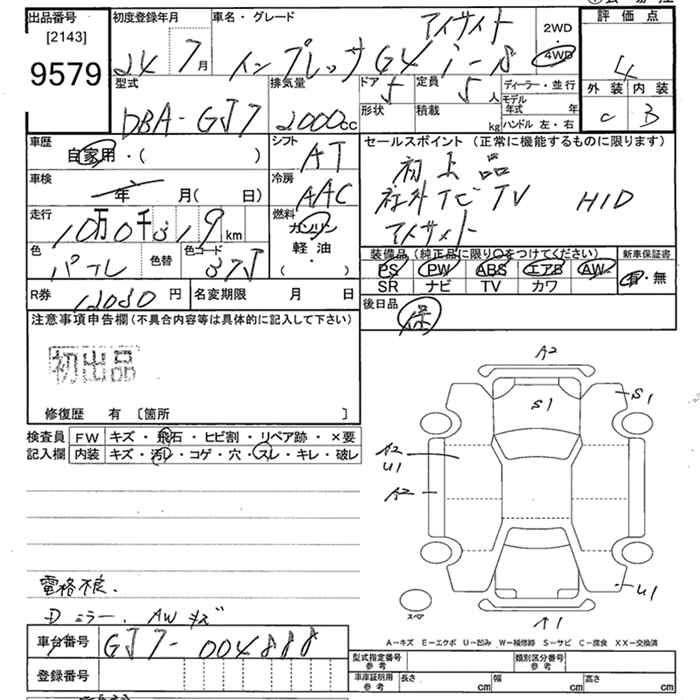 出品番号
[2143]
9579
初度登録年月
24 7月
車名・グレード
アイサイト
インプレッサG4 i-S
2WD
4WD
評価点
4
外装 内装
C B
型式
DBA-GJ7
排気量
2000cc
ドア 5
定員 5人
形状
積載 kg
ディーラー・並行
モデル年式 年
ハンドル 左・右
車歴
自家用・( )
シフト
AT
車検
年 月( 日)
冷房
AAC
走行
10万0千319km
燃料
ガソリン
軽・油
( ・ )
色
パール
色替
色コード
37J
セールスポイント (正常に機能するものに限ります)
初出品
社外ナビTV HID
アイサイト
装備品 (純正品に限り○をつけてください)
新車保証書
PS PW ABS エアB AW
SR ナビ TV カワ
有・無
R券 12030円
名変期限 月 日
後日品
保
注意事項申告欄(不具合内容等は具体的に記入して下さい)
初出品
修復歴 有 [箇所 ]
検査員
記入欄
FW キズ・飛石・ヒビ割・リペア跡・×要
内装 キズ・汚レ・コゲ・穴・スレ・キレ・破レ
A2
S1
S1
A2
U1
A2
U1
スペア
A1
電格不良.
ミラー. AWキズ
A-キズ E-エクボ U-凹み W-補修跡 S-サビ C-腐食 XX-交換済
車台番号
GJ7-004888
登録番号
型式指定番号
参考
類別区分番号
参考
車庫証明用
参考
長さ cm
幅 cm
高さ cm